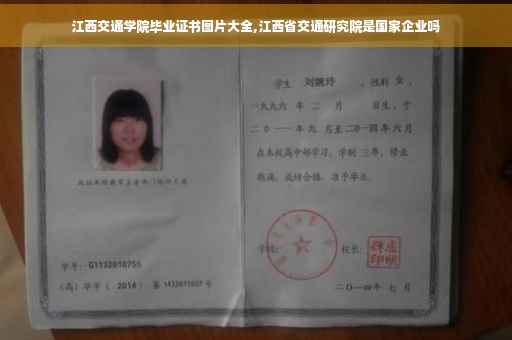 江西交通学院毕业证书图片大全,江西省交通研究院是国家企业吗
学生 刘婉玲 ，性别 女 ，
一九九六 年 二 月 日生，于
二〇一一年九 月至二〇一四年六月
在本校高中部学习，学制 三年，修业
期满，成绩合格，准予毕业。
学校：
校长：
学号：G1132010755
（高）毕字（ 2014 ）第 1432011027 号
二〇一四年 七 月